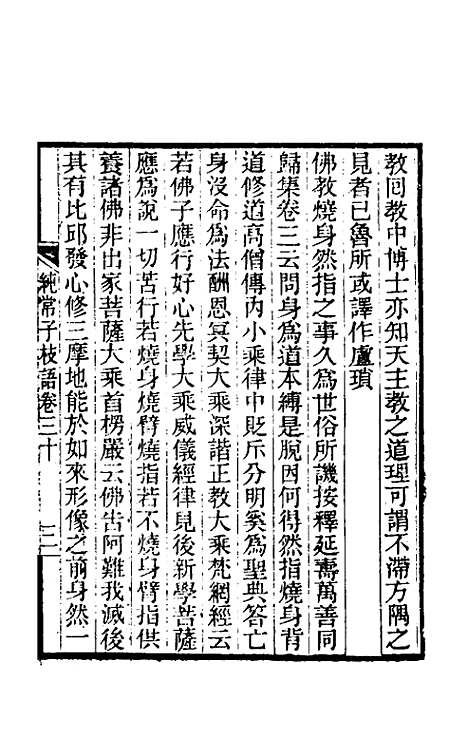 教回教中博士亦知天主教之道理可謂不滯方隅之
見者已魯所或譯作盧瑣
佛教燒身然指之事久為世俗所譏按釋延壽萬善同
歸集卷三云問身為道本縛是脫因何得然指燒身背
道修道高僧傳內小乘律中貶斥分明奚為聖典答亡
身沒命為法酬恩冥契大乘深諧正教大乘梵網經云
若佛子應行好心先學大乘威儀經律見後新學菩薩
應為說一切苦行若燒身燒臂燒指若不燒身臂指供
養諸佛非出家菩薩大乘首楞嚴云佛告阿難我滅後
其有比邱發心修三摩地能於如來形像之前身然一
純常子枝語卷三十
三